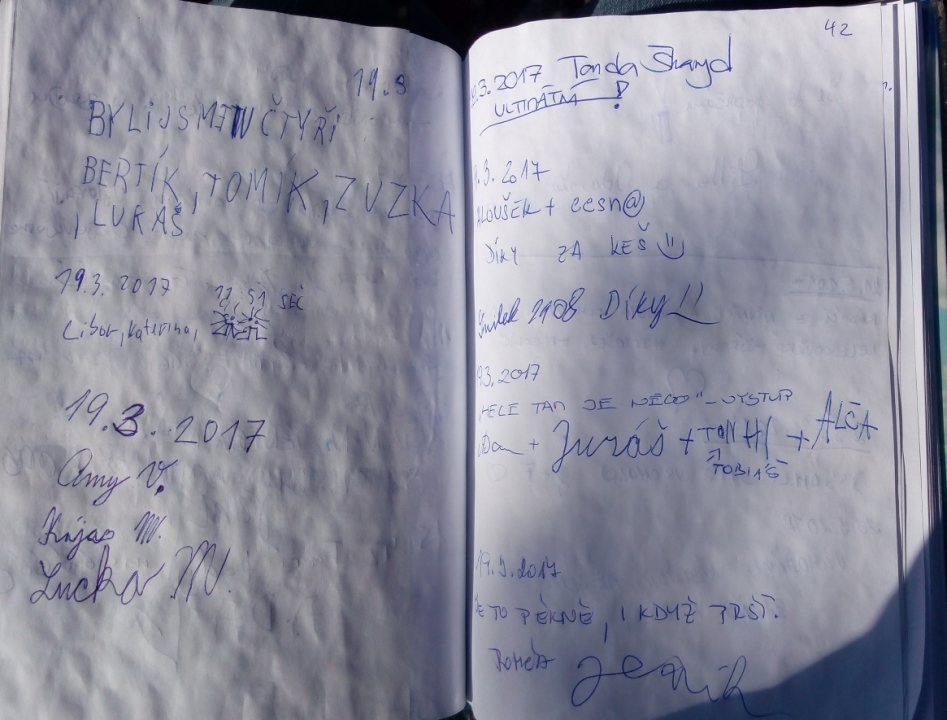 19.3
BYLI JSME ČTYŘI
BERTÍK, TOMÍK, ZUZKA
, LUKÁŠ
19.3. 2017
Libor, Kateřina,
19.3. 2017
Amy V.
Kájas M.
Lucka M.
42
.3.2017 Tonda
ULTIMÁTNÍ !
.3. 2017
ALOUŠEK + cesn@
DÍKY ZA KEŠ
2108 Díky!!
19.3. 2017
HELE TAM JE NĚCO" - VÝSTUP
Dan + Juráš + + ALČA
TOBIÁŠ
19.3.2017
JE TO PĚKNÉ, I KDYŽ PRŠÍ.
Jeník